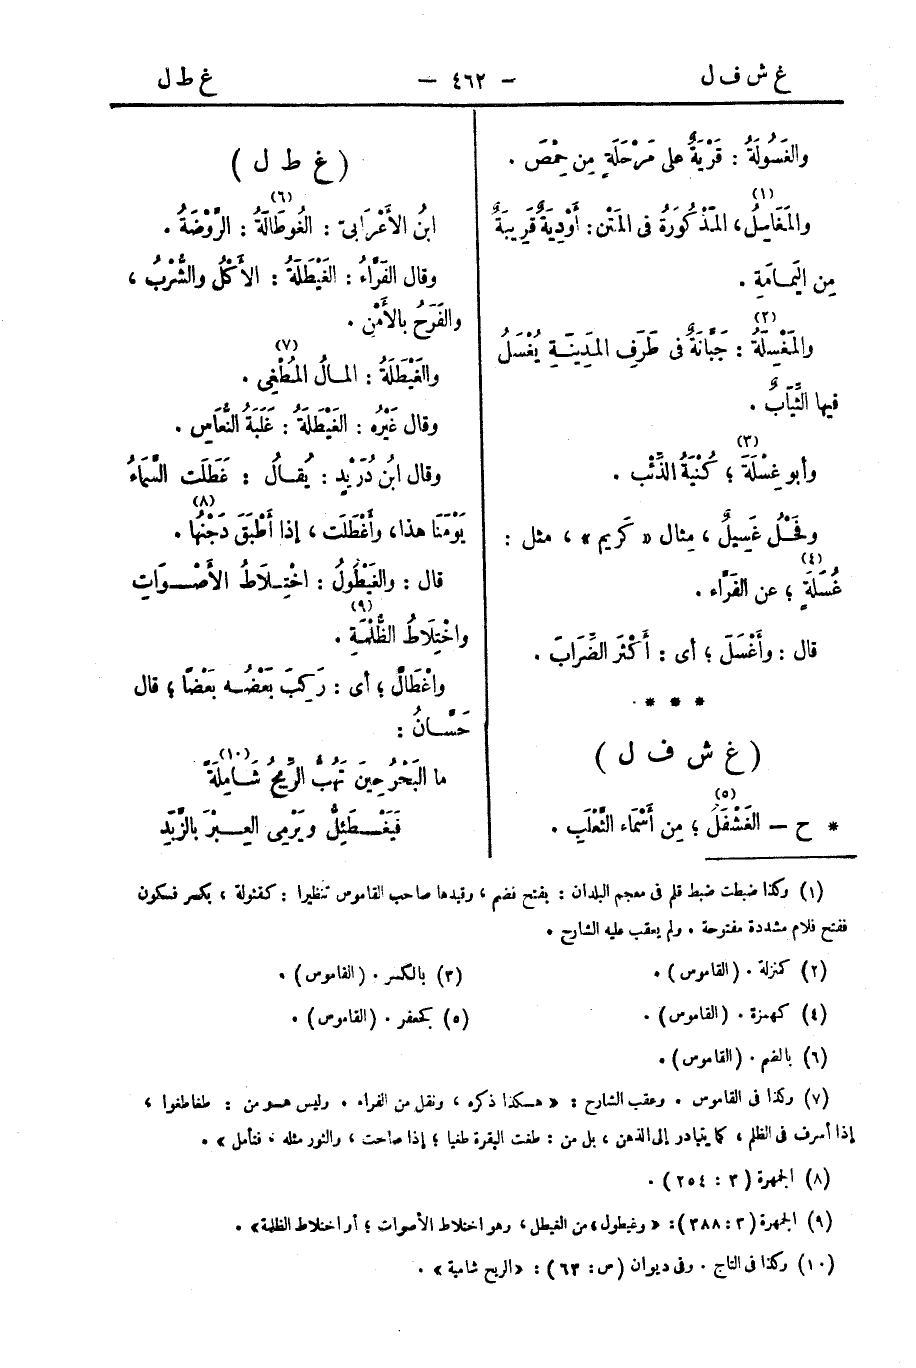 غ ش ف ل
— ٤٦٢ —
غ ط ل
والغَسُولَةُ : قَرْيَةٌ على مَرْحَلَةٍ مِن حِمْصَ .
والمَغَاسِلُ(١)، المَذْكُورَةُ فى المَتْن: أَوْدِيَةٌ قَرِيبَةٌ
مِن اليَمـامَةِ .
والمَغْسِلَةُ(٢) : جَبَّانَةٌ فى طَرَفِ المَدِينَـةِ يُغْسَلُ
فيها الثِّيَابُ .
وأبو غِسْلَةَ(٣) ؛ كُنْيَةُ الذِّئْب .
وفَحْلٌ غَسِيلٌ ، مِثال « كَرِيم » ، مثل :
غُسَلَةٍ(٤) ؛ عن الفَرَّاء .
قال : وأَغْسَلَ ؛ أى : أَكْثَرَ الضِّرَابَ .
* * *
( غ ش ف ل )
* ح — الغَشْفَلُ(٥) ؛ مِن أَسْمَاء الثَّعْلَبِ .
( غ ط ل )
ابنُ الأَعْرَابىّ : الغُوطَالَةُ(٦) : الرَّوْضَةُ .
وقال الفَرَّاءُ : الغَيْطَلَةُ : الأَكْلُ والشُّرْبُ ،
والفَرَحُ بالأَمْنِ .
والغَيْطَلَةُ : المـالُ المُطْغِى(٧) .
وقال غَيْرُه : الغَيْطَلَةُ : غَلَبَةُ النُّعَاسِ .
وقال ابنُ دُرَيْدٍ : يُقـالُ : غَطَلَت السَّمَاءُ
يَوْمَنَا هذا، وأَغْطَلَت ، إذا أَطْبَقَ دَجْنُها(٨) .
قال : والغَيْطُولُ : اخْتِـلَاطُ الأَصْـوَاتِ
واخْتِلَاطُ الظُّلْمَةِ(٩) .
واغْطَالَّ ؛ أى : رَكِبَ بَعْضُـه بَعْضًا ؛ قال
حَسَّـانُ :
ما البَحْرُ حِينَ تَهُبُّ الرِّيحُ شَـامِلَةً(١٠)
فَيَغْـطَئِلُّ ويَرْمِى العِـبْرَ بالزَّبَدِ
(١) وكذا ضبطت ضبط قلم فى معجم البلدان : بفتح فضم ، وقيدها صاحب القاموس تنظيرا : كقثولة ، بكسر فسكون
ففتح فلام مشددة مفتوحة . ولم يعقب عليه الشارح .
(٢) كمنزلة . (القاموس) .
(٣) بالكسر . (القاموس) .
(٤) كهمزة . (القاموس) .
(٥) كجعفر . (القاموس) .
(٦) بالضم . (القاموس) .
(٧) وكذا فى القاموس . وعقب الشارح : « هـكذا ذكره ، ونقل من الفراء . وليس هـو من : طغا طغوا ،
إذا أسرف فى الظلم ، كما يتبادر إلى الذهن ، بل من : طغت البقرة طغيا ؛ إذا صاحت ، والثور مثله . فتأمل » .
(٨) الجمهرة (٣ : ٢٥٤) .
(٩) الجمهرة (٣ : ٣٨٨): « وغيطول، من الغيطل، وهو اختلاط الأصوات ؛ أو اختلاط الظلمة» .
(١٠) وكذا فى التاج . وفى ديوان (ص: ٦٣) : «الريح شامية » .